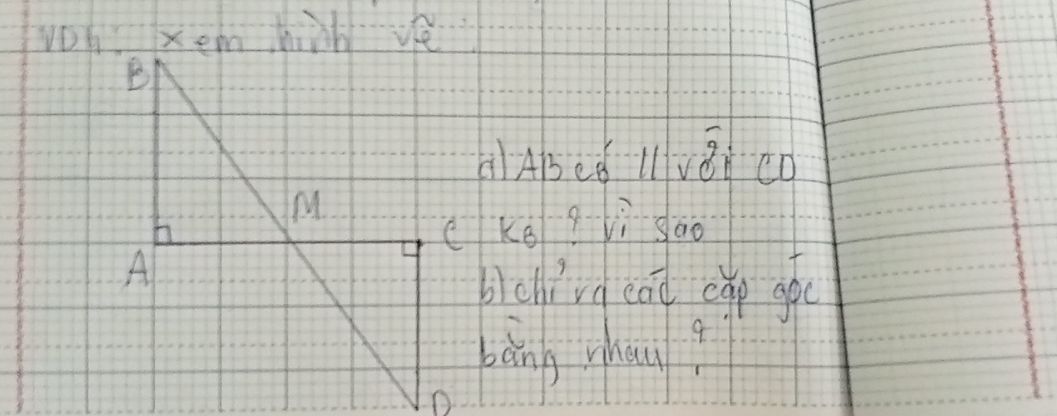 VD4: xem hình vẽ
B
a) AB có // với CD
M
C kô? vì sao
A
b) chỉ ra các cặp góc
bằng nhau?
D